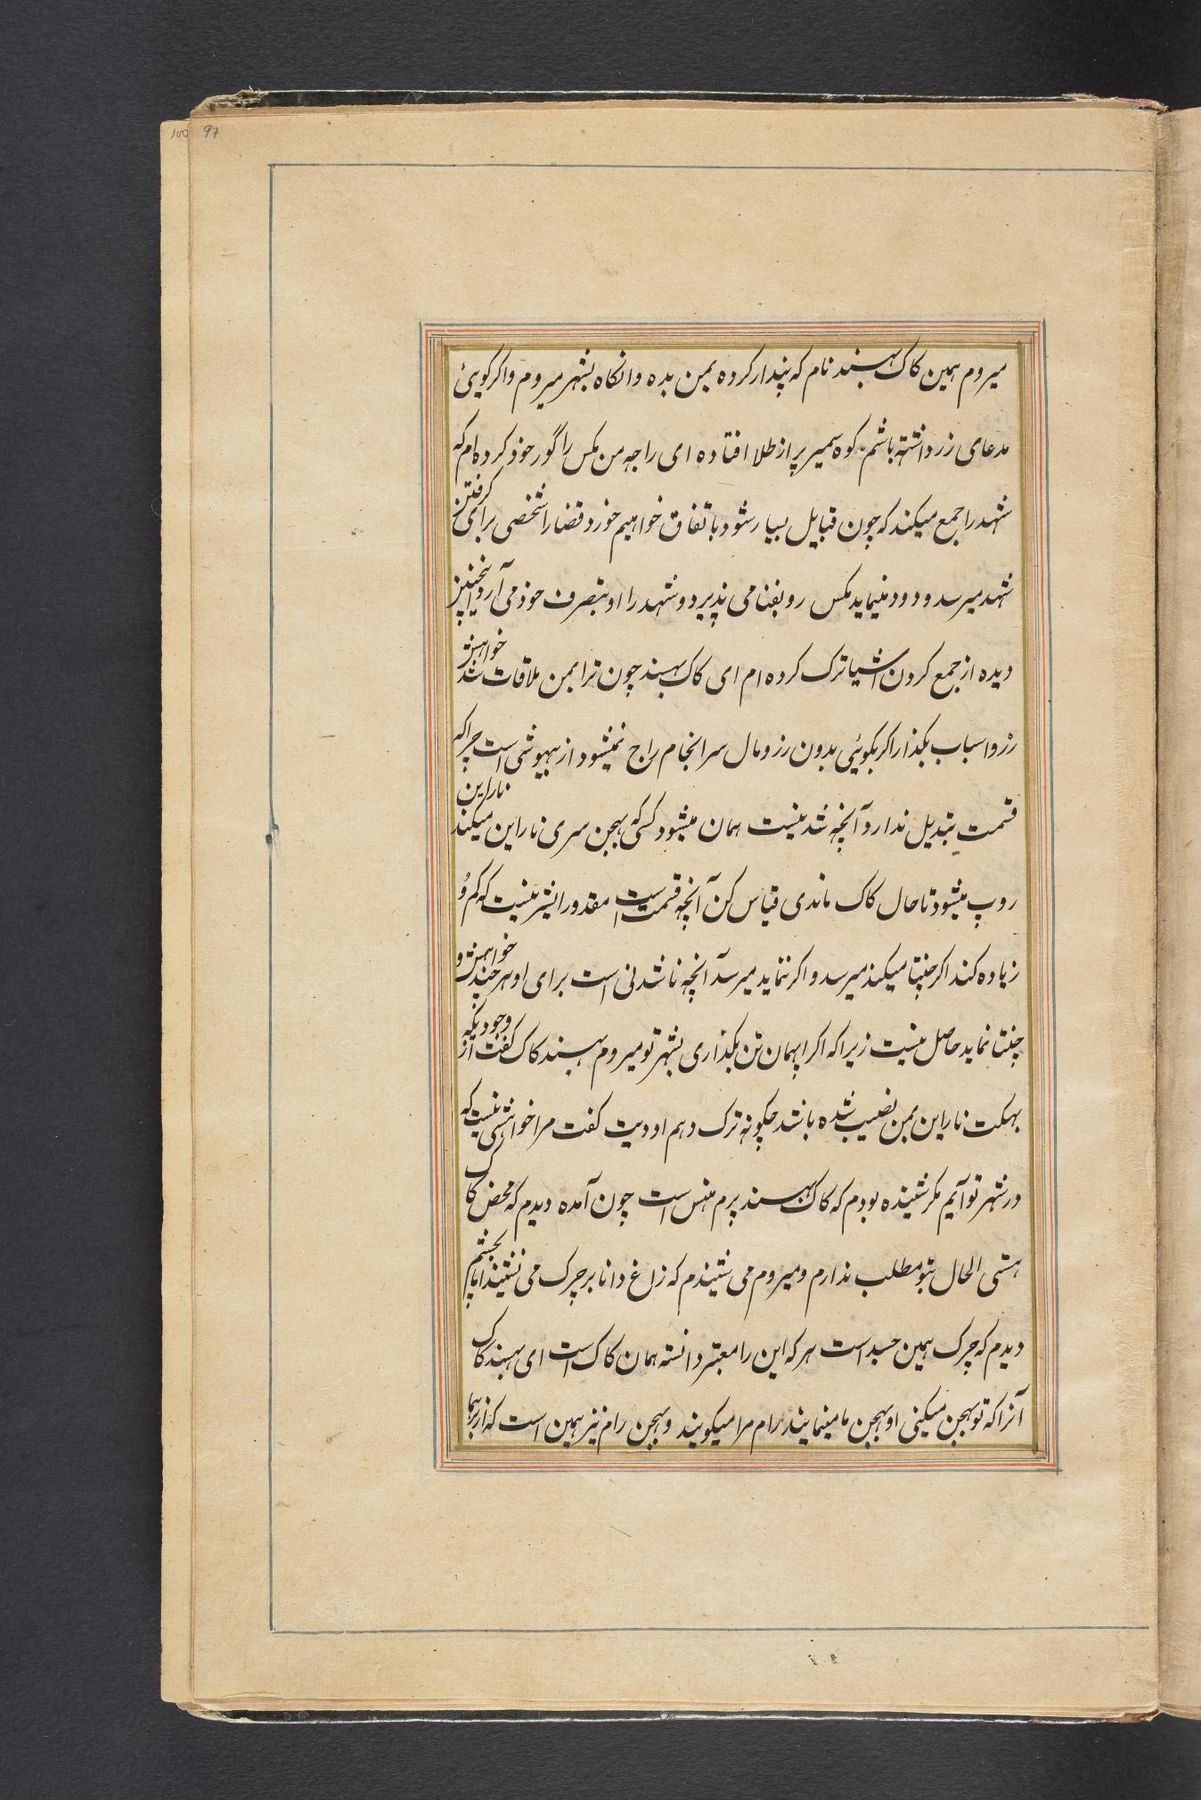 100 97
میروم همین کاک بهسند نام که پندار کرده بمن بده وانکاه بشهر میروم واکر کوئی
مدعای زر داشته باشم کوه سمیر پر از طلا افتاده ای راجه من مکس را گور خود کرده ام که
شهد را جمع میکند که چون قبایل بسیار شود باتفاق خواهیم خورد قضارا شخصی برای کرفتن
شهد میرسد و دود مینماید مکس رو بفنا می پذیرد و شهد را او بتصرف خود می آرد اینچنین
دیده از جمع کردن اشیا ترک کرده ام ای کاک بهسند چون ترا بمن ملاقات شد خواهش
زر و اسباب بکذار اکر بکوئی بدون زر و مال سرانجام راج نمیشود از بیهوشی است چراکه
قسمت تبدیل ندارد آنچه شدنیست همان میشود کسی که بهجن سری ناراین میکند ناراین
روپ میشود تا حال کاک ماندی قیاس کن آنچه قسمت است مقدور بشر نیست که کم و
زیاده کند اکر چنتا میکند میرسد و اکر ننماید میرسد آنچه ناشدنی است برای او هر چند خواهش و
چنتا نماید حاصل نیست زیراکه اکر ابهمان تن بکذاری بشهر تو میروم بهسند کاک کفت از وجودیکه
بهکت ناراین بمن نصیب شده باشد چکونه ترک دهم اودیت کفت مرا خواهشی نیست که
در شهر تو آیم مکر شنیده بودم که کاک بهسند پرم هنس است چون آمده دیدم که محض کاک
هستی الحال بتو مطلب ندارم و میروم می شنیدم که زاغ دانا بر چرک می نشیند اما بچشم
دیدم که چرک همین جسد است هر که این را معتبر دانسته همان کاک است ای بهسند کاک
آنرا که تو بهجن میکنی او بهجن ما مینمایند رام رام میکویند و بهجن رام نیز همین است که از برهما